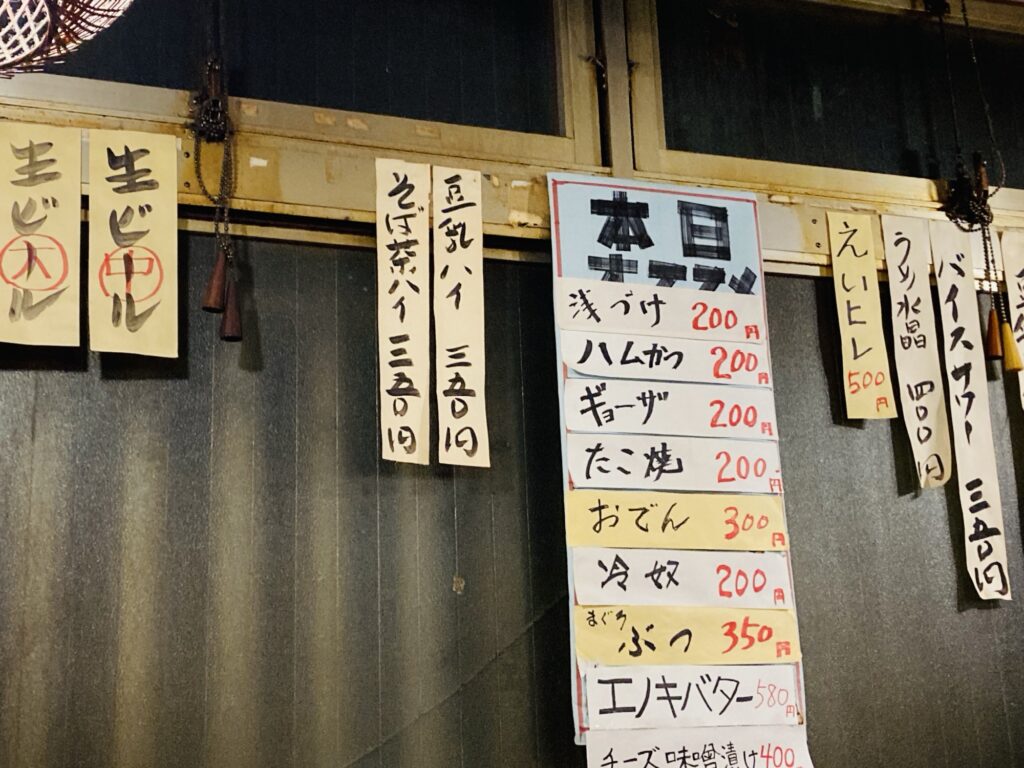 生ビール
大
生ビール
中
そば茶ハイ 三五〇円
豆乳ハイ 三五〇円
本日
浅づけ 200円
ハムカツ 200円
ギョーザ 200円
たこ焼 200円
おでん 300円
冷奴 200円
まぐろ
ぶつ 350円
エノキバター 580円
チーズ味噌漬け 400
えいヒレ 500円
うめ水晶 四〇〇円
バイスサワー 三五〇円